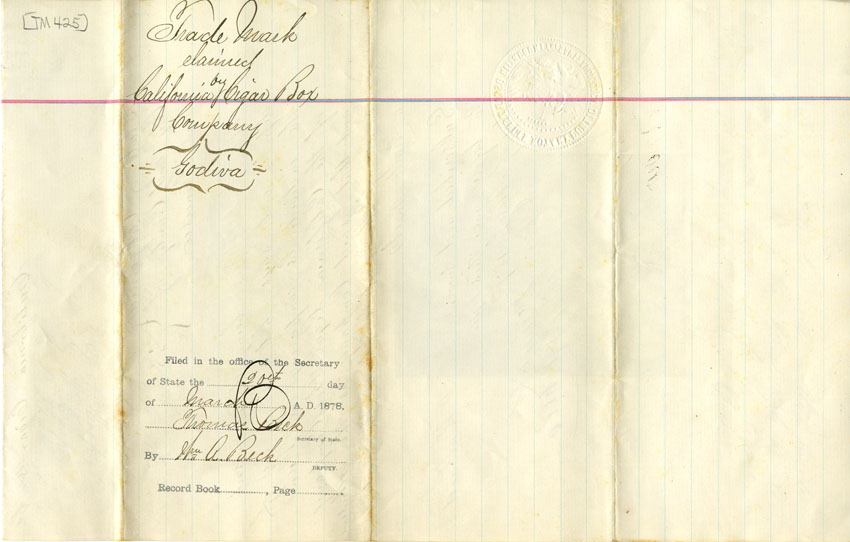 [TM 425]
Trade Mark
claimed
by
California Cigar Box
Company
Godiva
Filed in the office of the Secretary
of State the day
of March A. D. 1878,
Thomas Beck
Secretary of State.
By Wm A. Beck
DEPUTY.
Record Book , Page